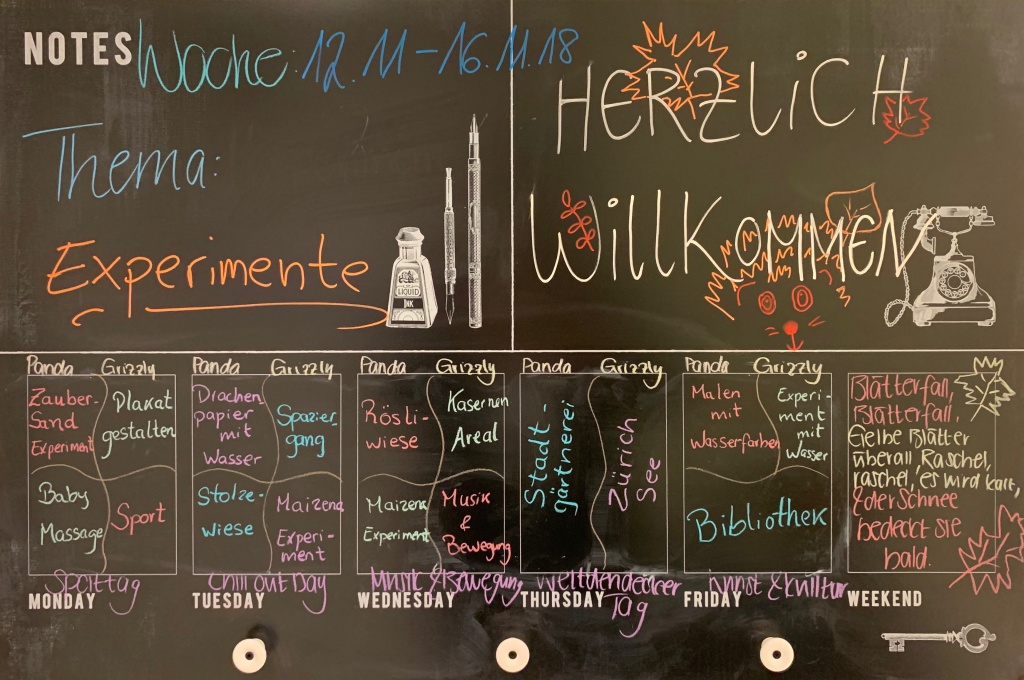 NOTES
Woche: 12.11-16.11.18
Thema:
Experimente
LIQUID
INK
HERZLICH
WILLKOMMEN
Panda Grizzly
Zauber-
Sand
Experiment
Plakat
gestalten
Baby
Massage
Sport
Sporttag
MONDAY
Panda Grizzly
Drachen
papier
mit
Wasser
Spazier-
gang
Stolze-
wiese
Maizena
Experi-
ment
Chill out Day
TUESDAY
Panda Grizzly
Rösli-
wiese
Kasernen
Areal
Maizena
Experiment
Musik
&
Bewegung
Musik & Bewegung
WEDNESDAY
Panda Grizzly
Stadt-
gärtnerei
Zürich
See
Weltdendecker
Tag
THURSDAY
Panda Grizzly
Malen
mit
Wasserfarben
Experi-
ment
mit
Wasser
Bibliothek
Kunst & Kulltur
FRIDAY
Blätterfall,
Blätterfall,
Gelbe Blätter
überall Raschel,
raschel, es wird kalt,
& der Schnee
bedeckt sie
bald.
WEEKEND